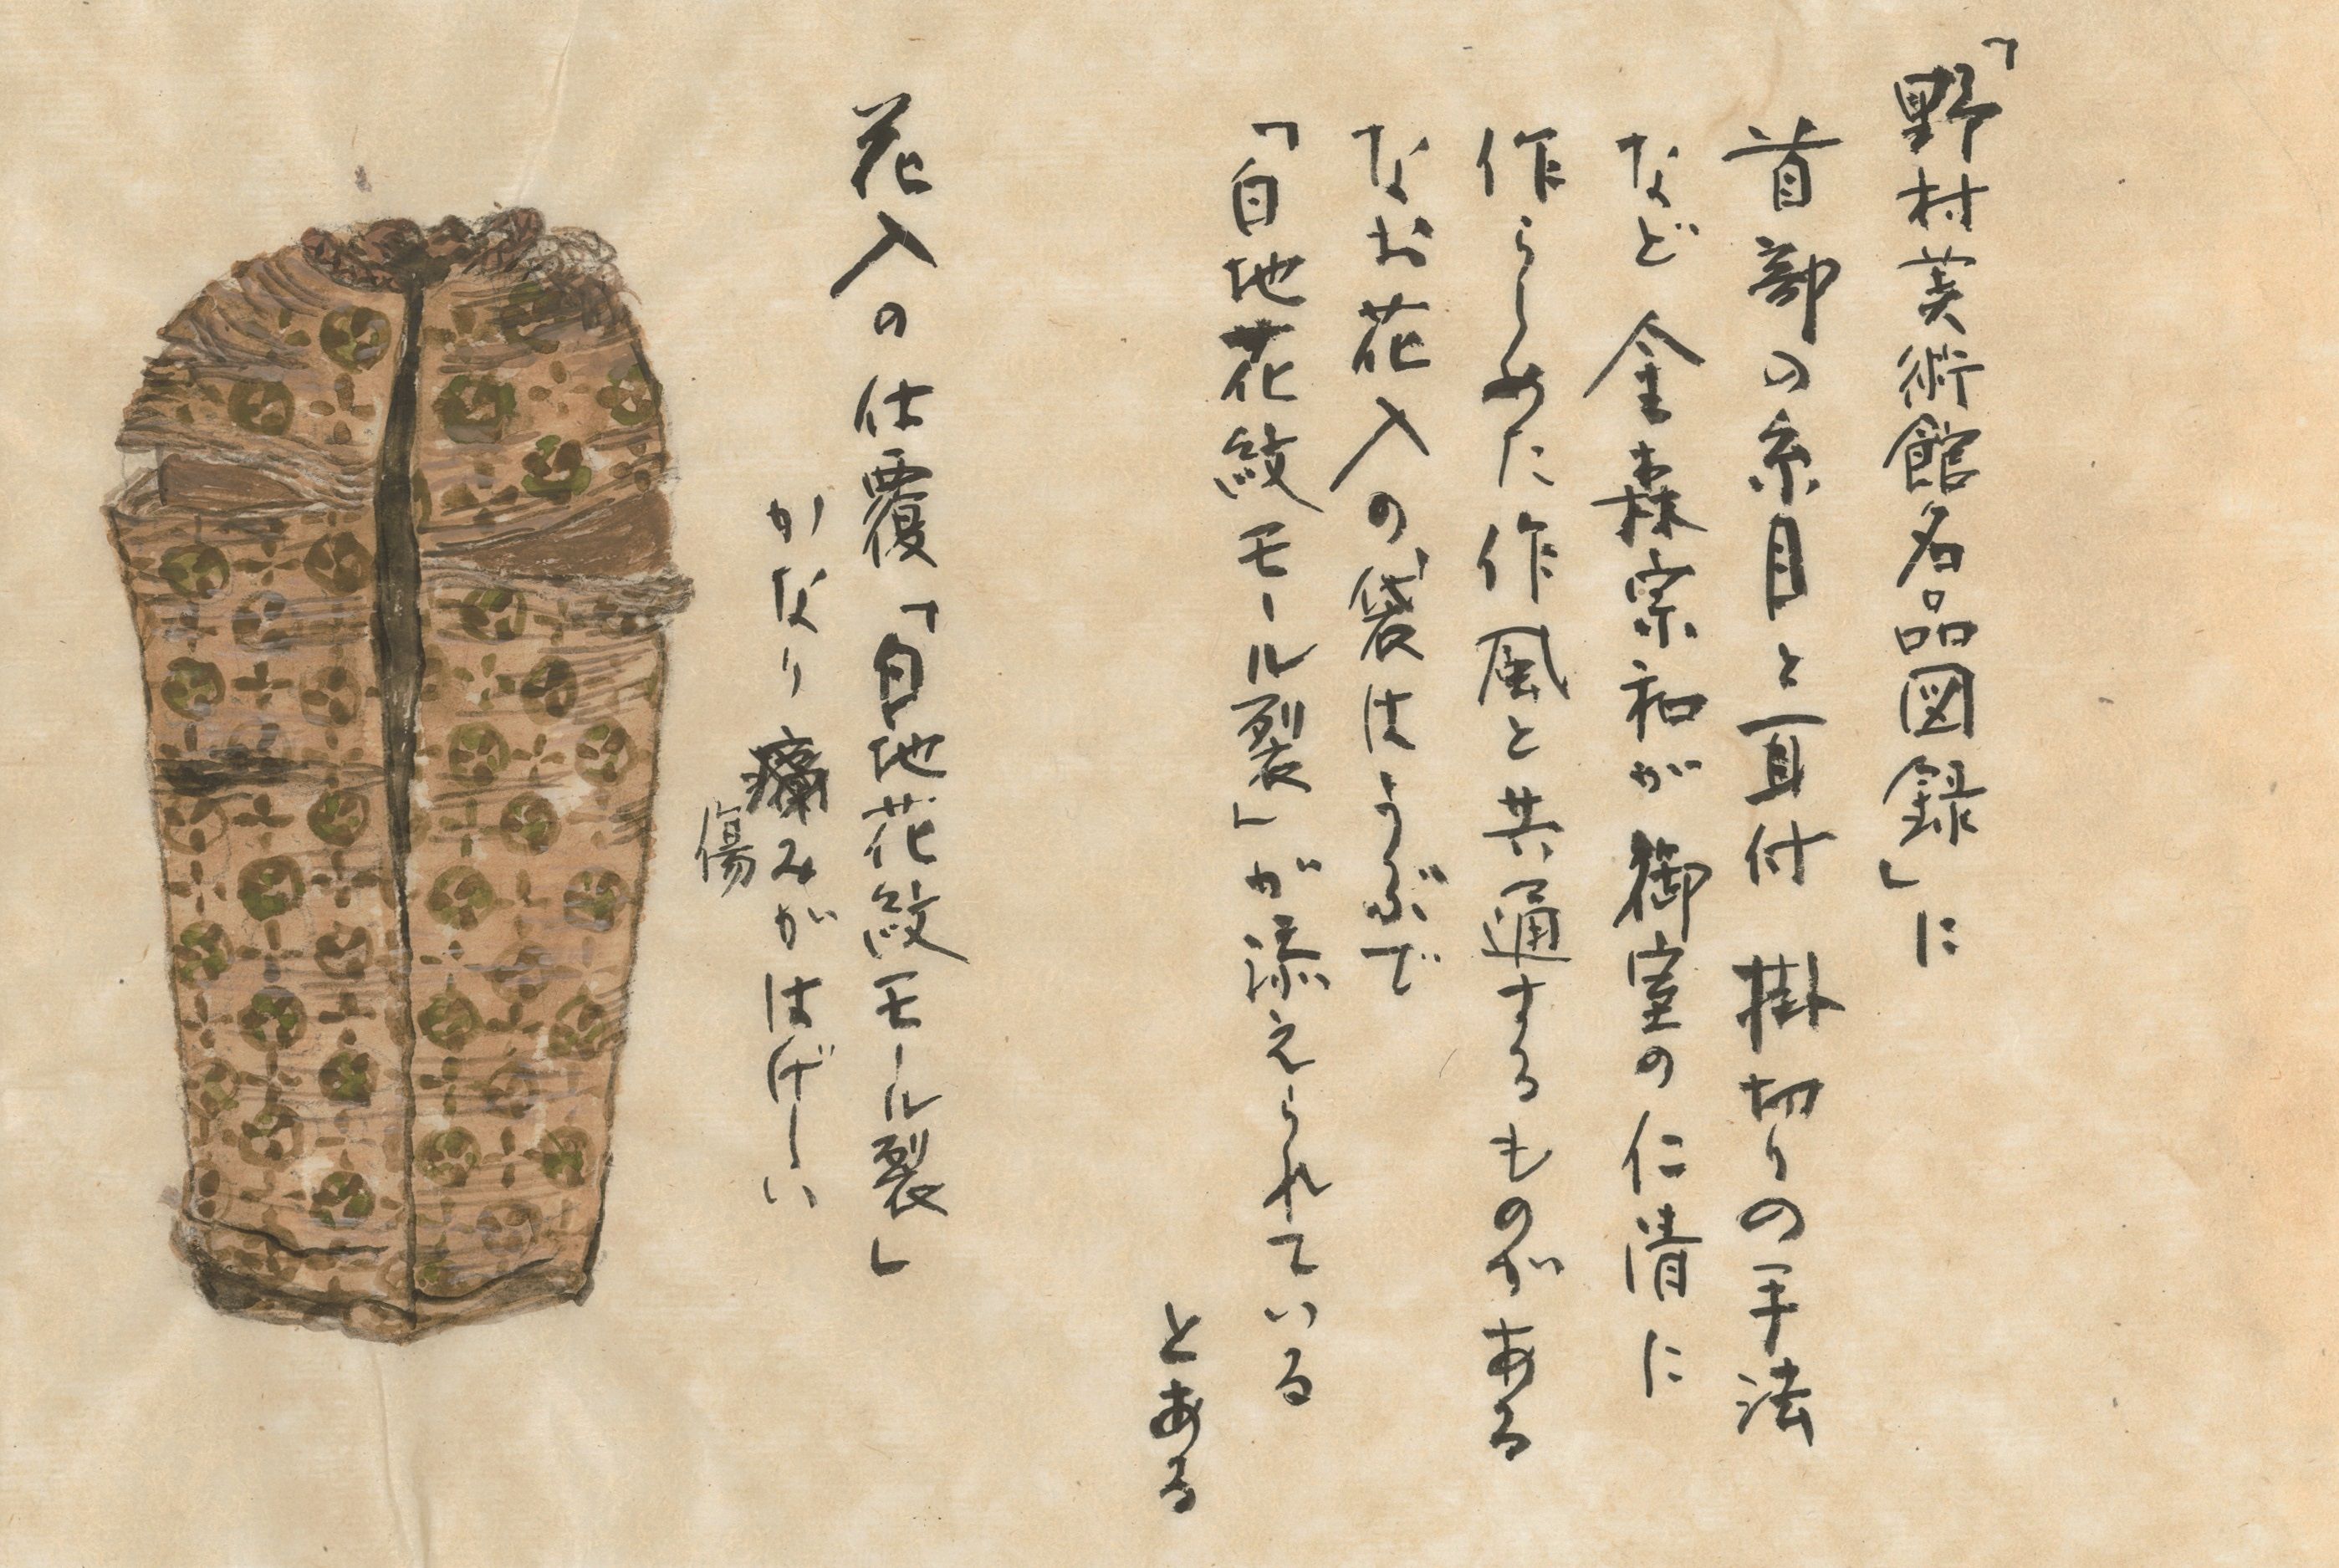 「野村美術館名品図録」に
首部の糸目と耳付 掛切りの手法
など 金森宗和が 御室の仁清に
作らしめた作風と共通するものがある
なお花入の袋はうぶで
「白地花紋モール裂」が添えられている
とある
花入の仕覆「白地花紋モール裂」
かなり痛みがはげしい
傷